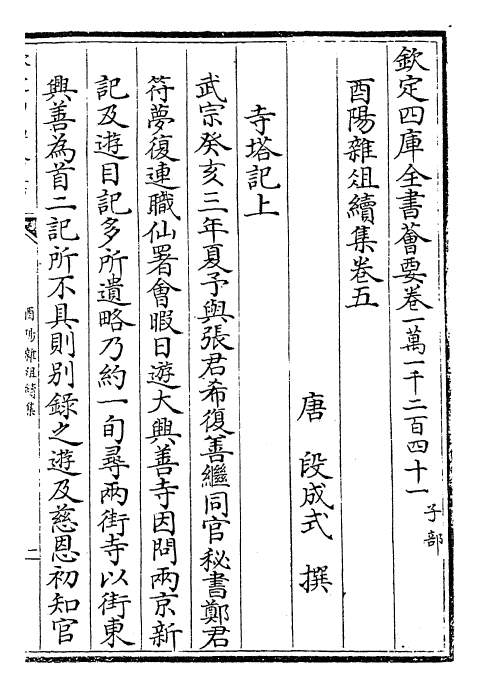 欽定四庫全書薈要卷一萬一千二百四十一
子部
酉陽雜俎續集卷五
唐 段成式 撰
寺塔記上
武宗癸亥三年夏予與張君希復善繼同官秘書鄭君
符夢復連職仙署會暇日遊大興善寺因問兩京新
記及遊目記多所遺略乃約一旬尋兩街寺以街東
興善為首二記所不具則別錄之遊及慈恩初知官
酉陽雜俎續集